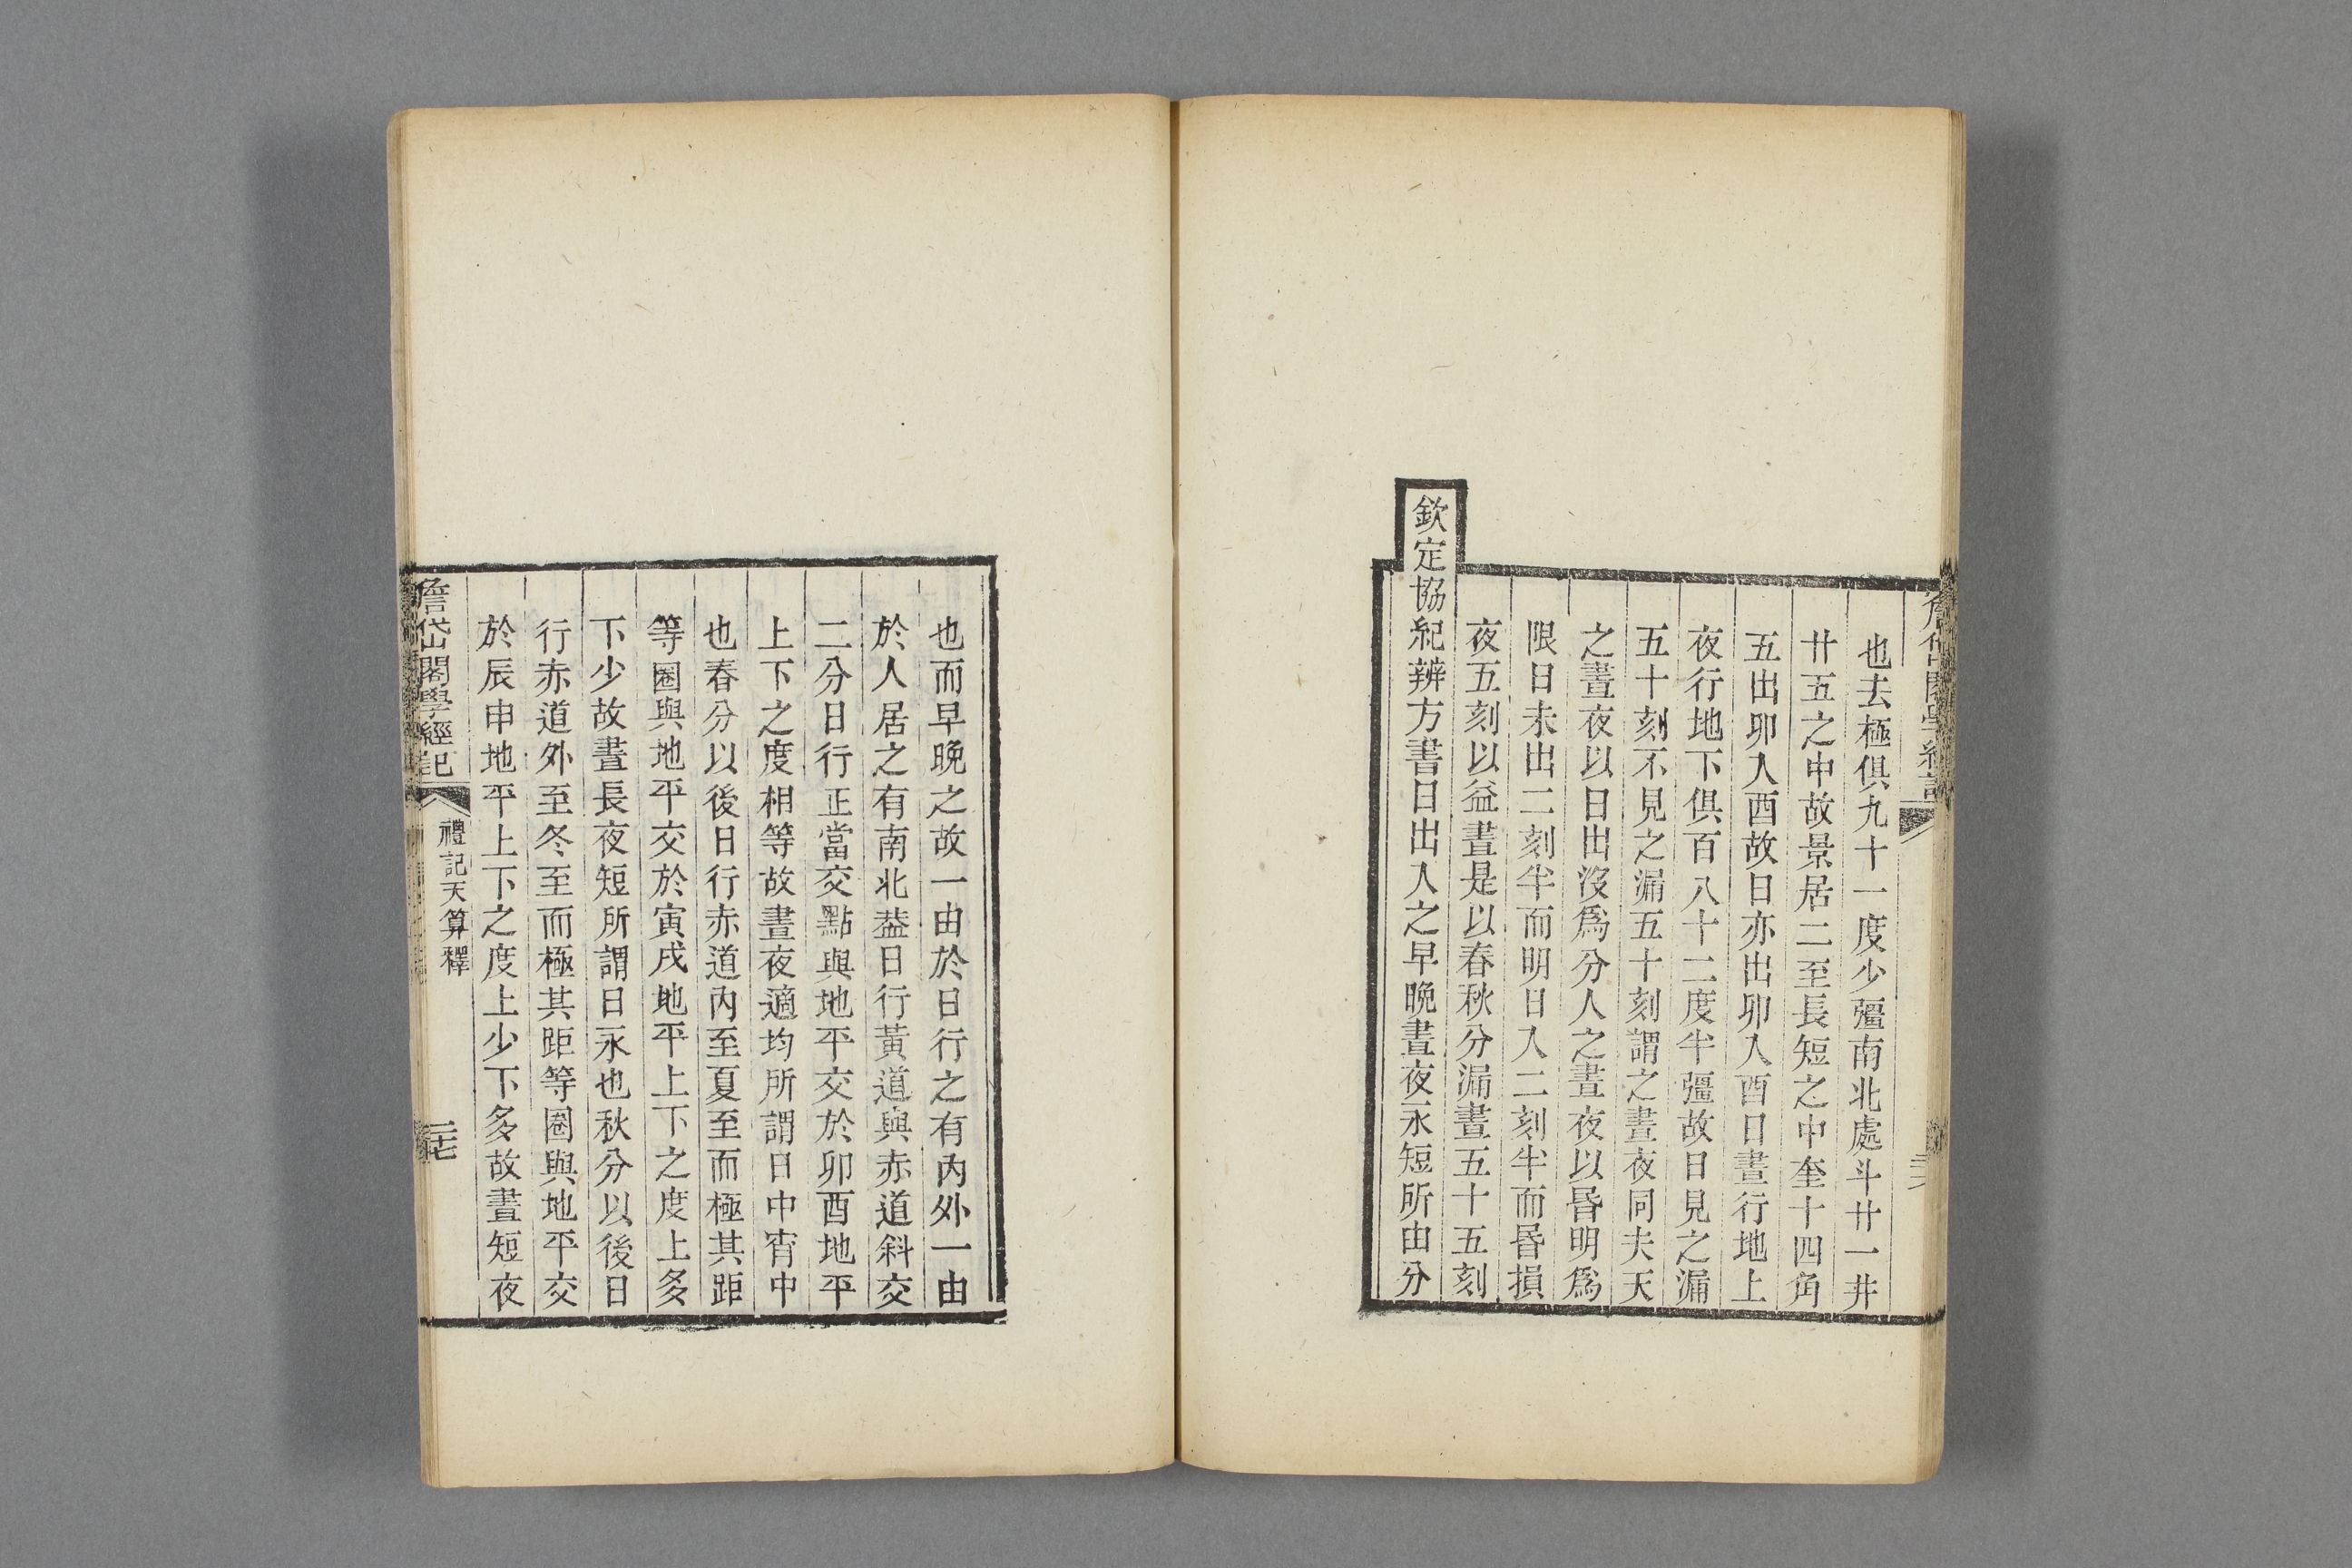 也去極俱九十一度少彊南北處斗廿一井
廿五之中故景居二至長短之中奎十四角
五出卯入酉故日亦出卯入酉日晝行地上
夜行地下俱百八十二度半彊故日見之漏
五十刻不見之漏五十刻謂之晝夜同夫天
之晝夜以日出沒爲分人之晝夜以昏明爲
限日未出二刻半而明日入二刻半而昏損
夜五刻以益晝是以春秋分漏晝五十五刻
欽定協紀辨方書日出入之早晚晝夜永短所由分
也而早晚之故一由於日行之有內外一由
於人居之有南北葢日行黃道與赤道斜交
二分日行正當交點與地平交於卯酉地平
上下之度相等故晝夜適均所謂日中宵中
也春分以後日行赤道內至夏至而極其距
等圈與地平交於寅戌地平上下之度上多
下少故晝長夜短所謂日永也秋分以後日
行赤道外至冬至而極其距等圈與地平交
於辰申地平上下之度上少下多故晝短夜
詹岱閣學經記
禮記天算釋
二十七